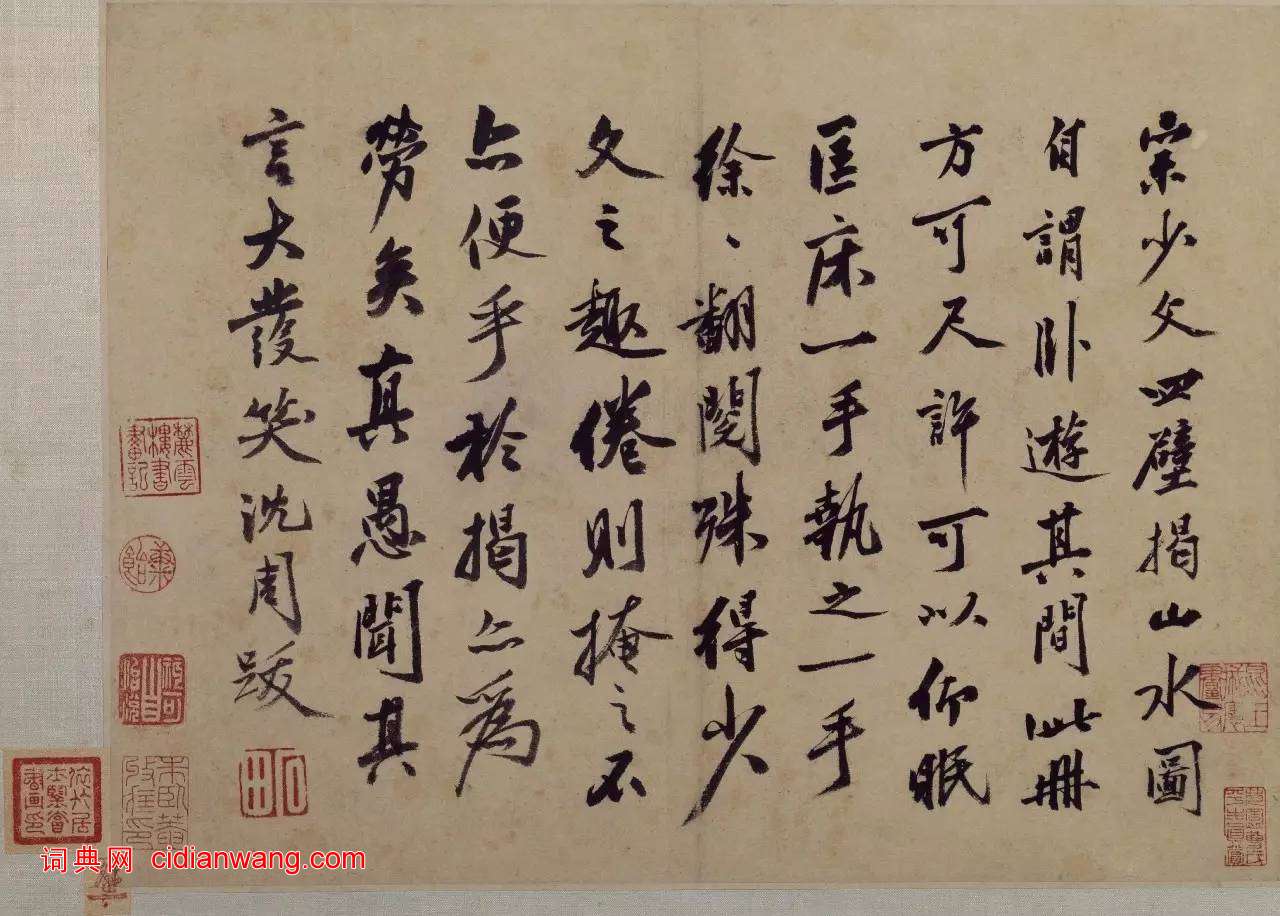 宗少文四壁揭山水圖
自謂卧遊其間此冊
方可尺許可以仰眠
匡床一手執之一手
徐、翻閱殊得少
文之趣倦則掩之不
亦便乎於揭亦為
勞矣真愚聞其
言大發笑沈周跋
石田
词典网 cidianwang.com